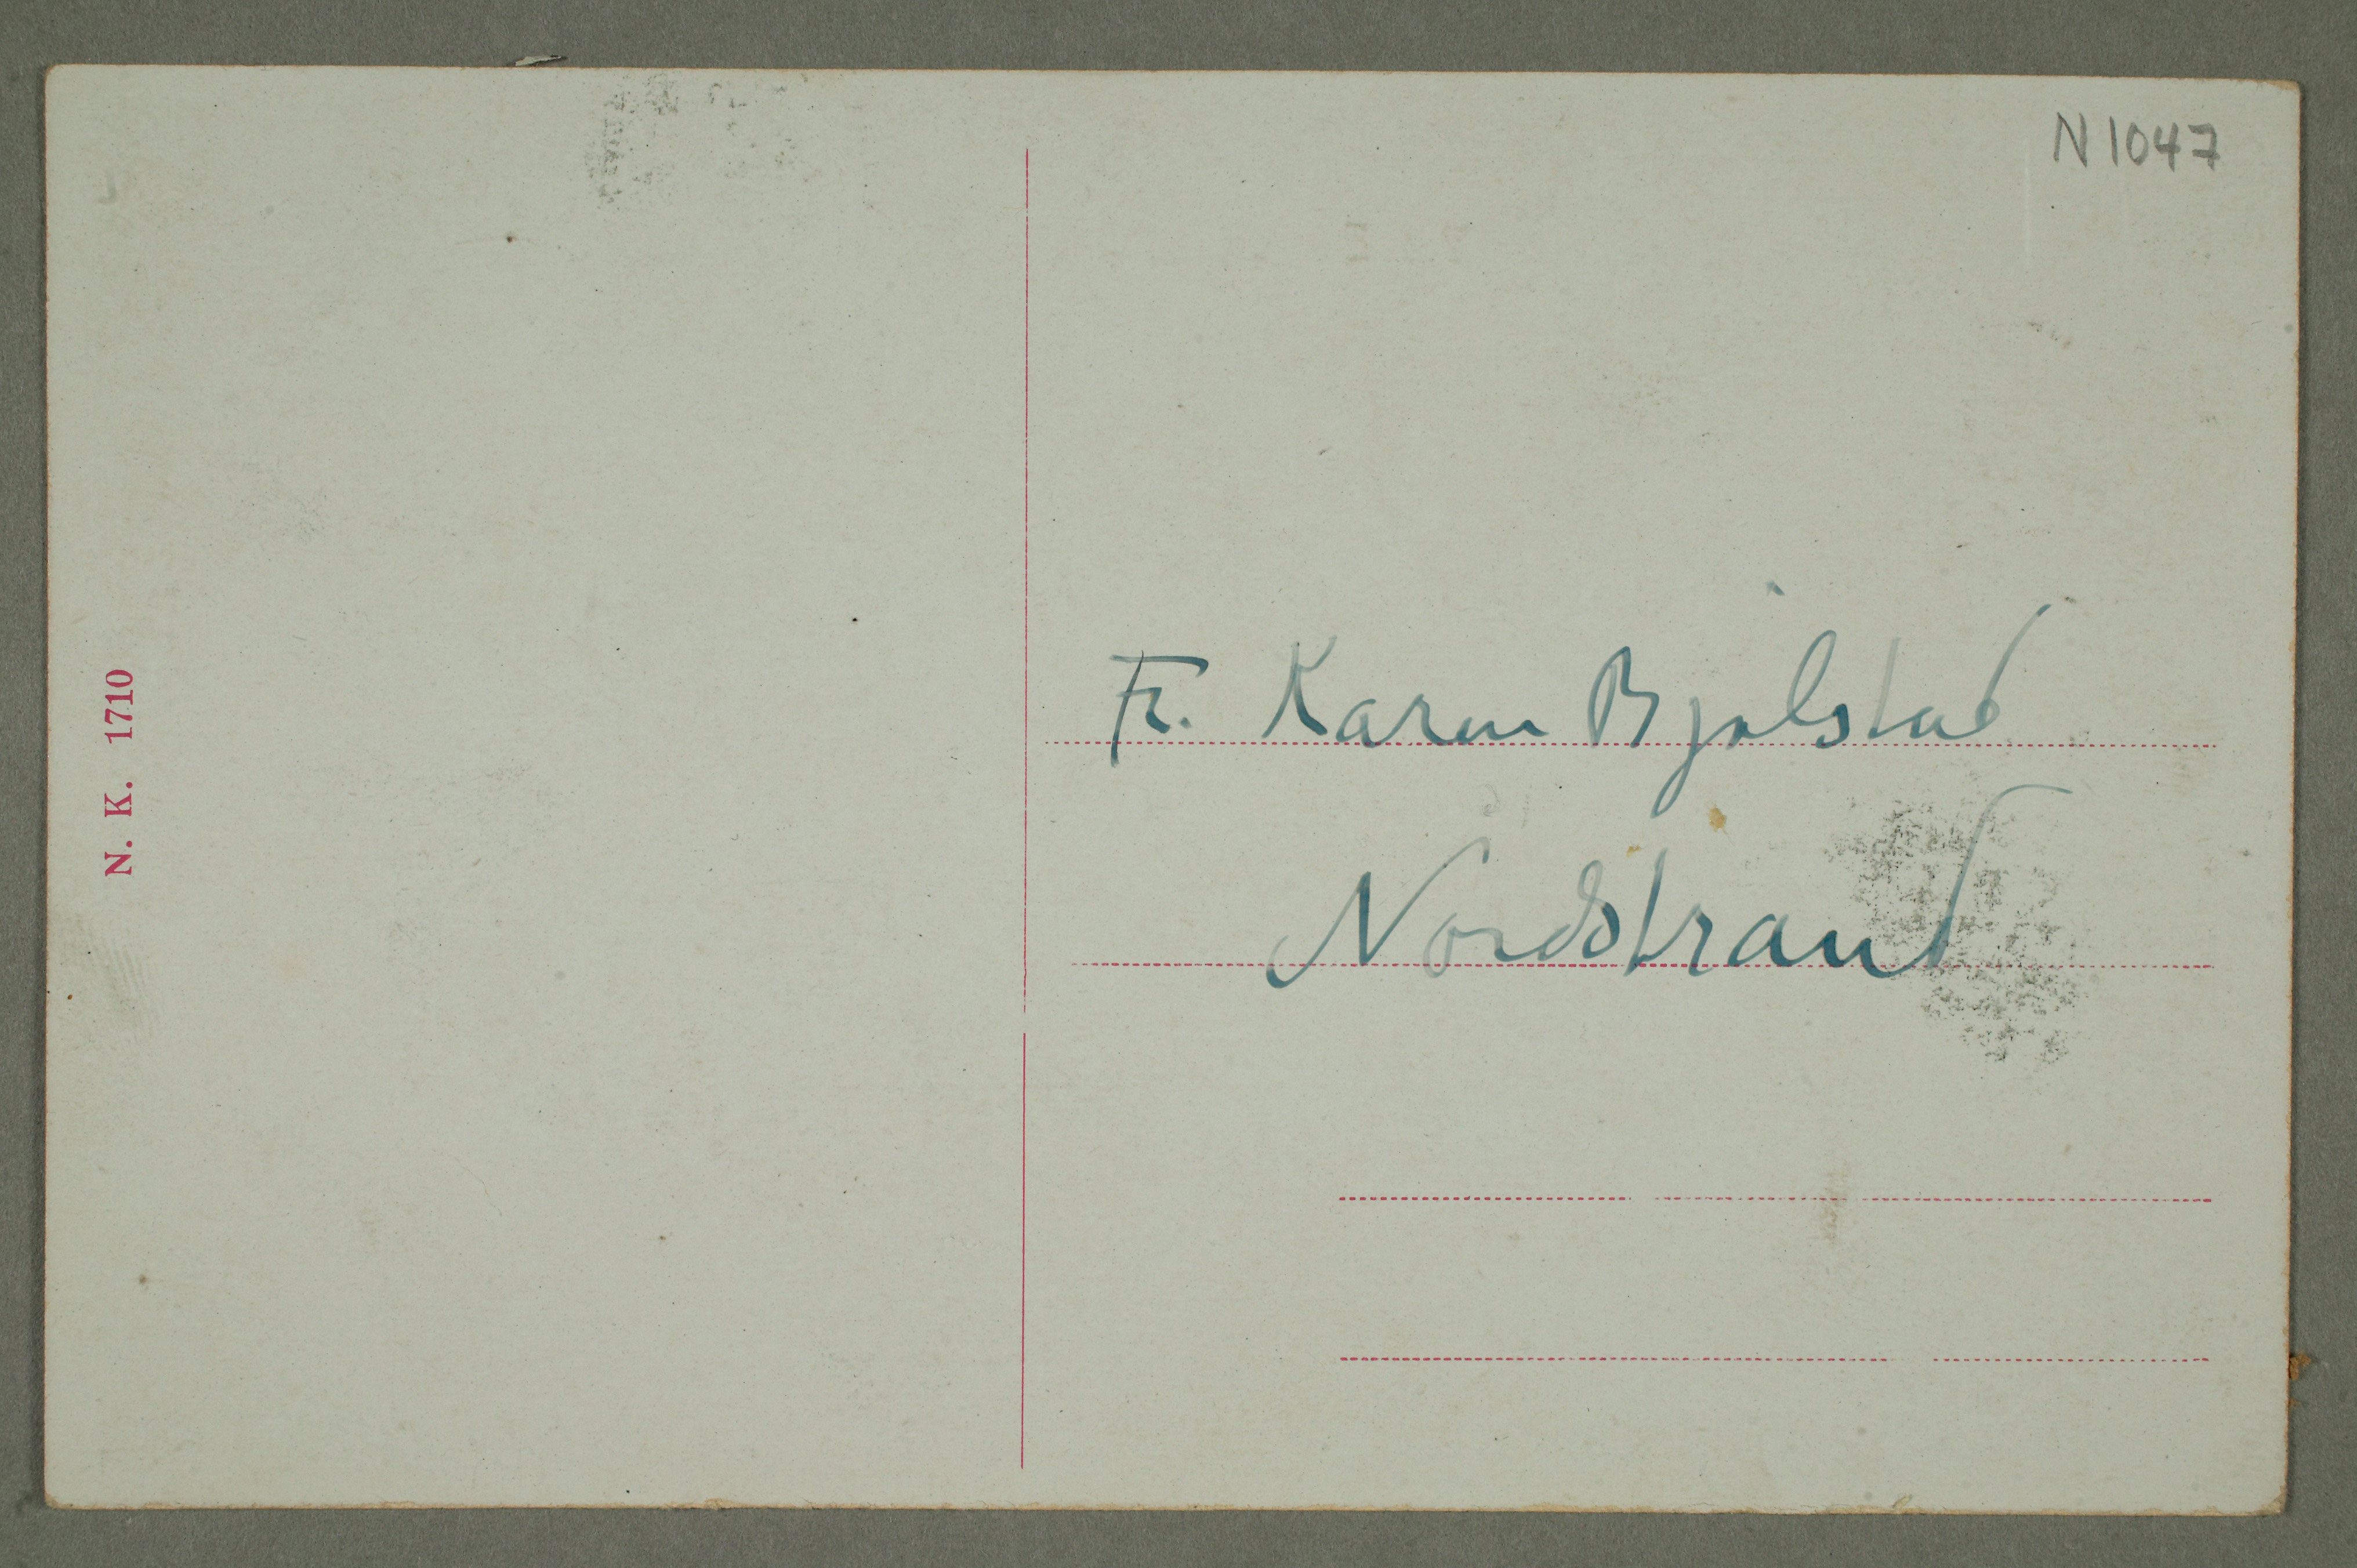 N 1047
N. K. 1710
Fr. Karen Bjølstad
Nordstrand